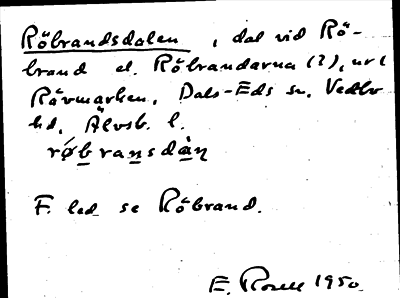 Röbrandsdalen, dal vid Rö-
brand el. Röbrandarna (?), nr i
Rävmarken, Dals-Eds sn, Vedbo
hd, Älvsb. l.
røbransdàn̥
F. led se Röbrand.
E. Rosell 1950.